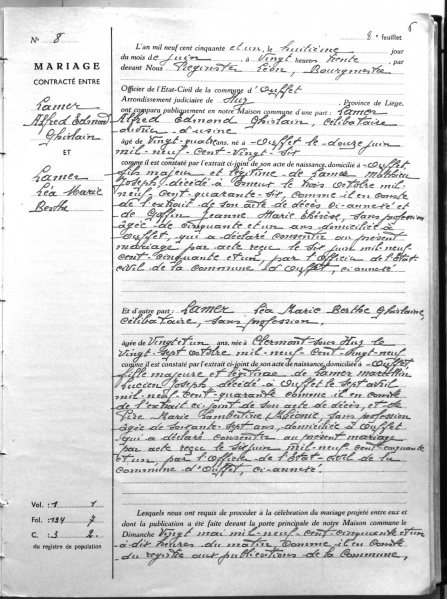 N° 8
MARIAGE
CONTRACTÉ ENTRE
Lamer
Alfred Edmond
Ghislain
ET
Lamer
Léa Marie
Berthe
Vol. : 1 1
Fol. : 134 7
C. : 3 2
du registre de population
8e feuillet
6
L'an mil neuf cent cinquante et un, le huitième jour
du mois de juin, à vingt heures trente
devant Nous Léon, Bourgmestre
Officier de l'Etat-Civil de la commune d'Ouffet
Arrondissement judiciaire de Huy, Province de Liège,
ont comparu publiquement en notre Maison commune d'une part : Lamer
Alfred Edmond Ghislain, célibataire
ouvrier d'usine
âgé de vingt-quatre ans, né à Ouffet le douze juin
mil-neuf-cent-vingt-six
comme il est constaté par l'extrait ci-joint de son acte de naissance, domicilié à Ouffet
fils majeur et légitime de Lamer Mathieu
Joseph, décédé à le trois octobre mil-
neuf-cent-quarante-six, comme il en conste
de l'extrait de son acte de décès ci-annexé et
de Jeanne Marie Thérèse, sans profession
âgée de cinquante et un ans domiciliée à
Ouffet, qui a déclaré consentir au présent
mariage, par acte reçu le six juin mil-neuf-
cent-cinquante et un, par l'Officier de l'Etat
civil de la Commune d'Ouffet, ci-annexé
Et d'autre part : Lamer Léa Marie Berthe Ghislaine,
célibataire, sans profession,
âgée de vingt et un ans, née à Clermont sous Huy le
vingt-sept octobre mil-neuf-cent-vingt-neuf
comme il est constaté par l'extrait ci-joint de son acte de naissance, domiciliée à Ouffet
fille majeure et légitime de Lamer
Lucien Joseph, décédé à Ouffet le sept avril
mil-neuf-cent-quarante comme il en conste
de l'extrait ci-joint de son acte de décès, et de
Marie Lambertine, sans profession
âgée de soixante-sept ans, domiciliée à Ouffet
qui a déclaré consentir au présent mariage
par acte reçu le six juin mil-neuf-cent-cinquante
et un, par l'Officier de l'Etat-civil de la
Commune d'Ouffet, ci-annexé.
Lesquels nous ont requis de procéder à la célébration du mariage projeté entre eux et
dont la publication a été faite devant la porte principale de notre Maison commune le
Dimanche vingt mai mil-neuf-cent-cinquante et un
à dix heures du matin, comme il en conste
du registre aux publications de la Commune,